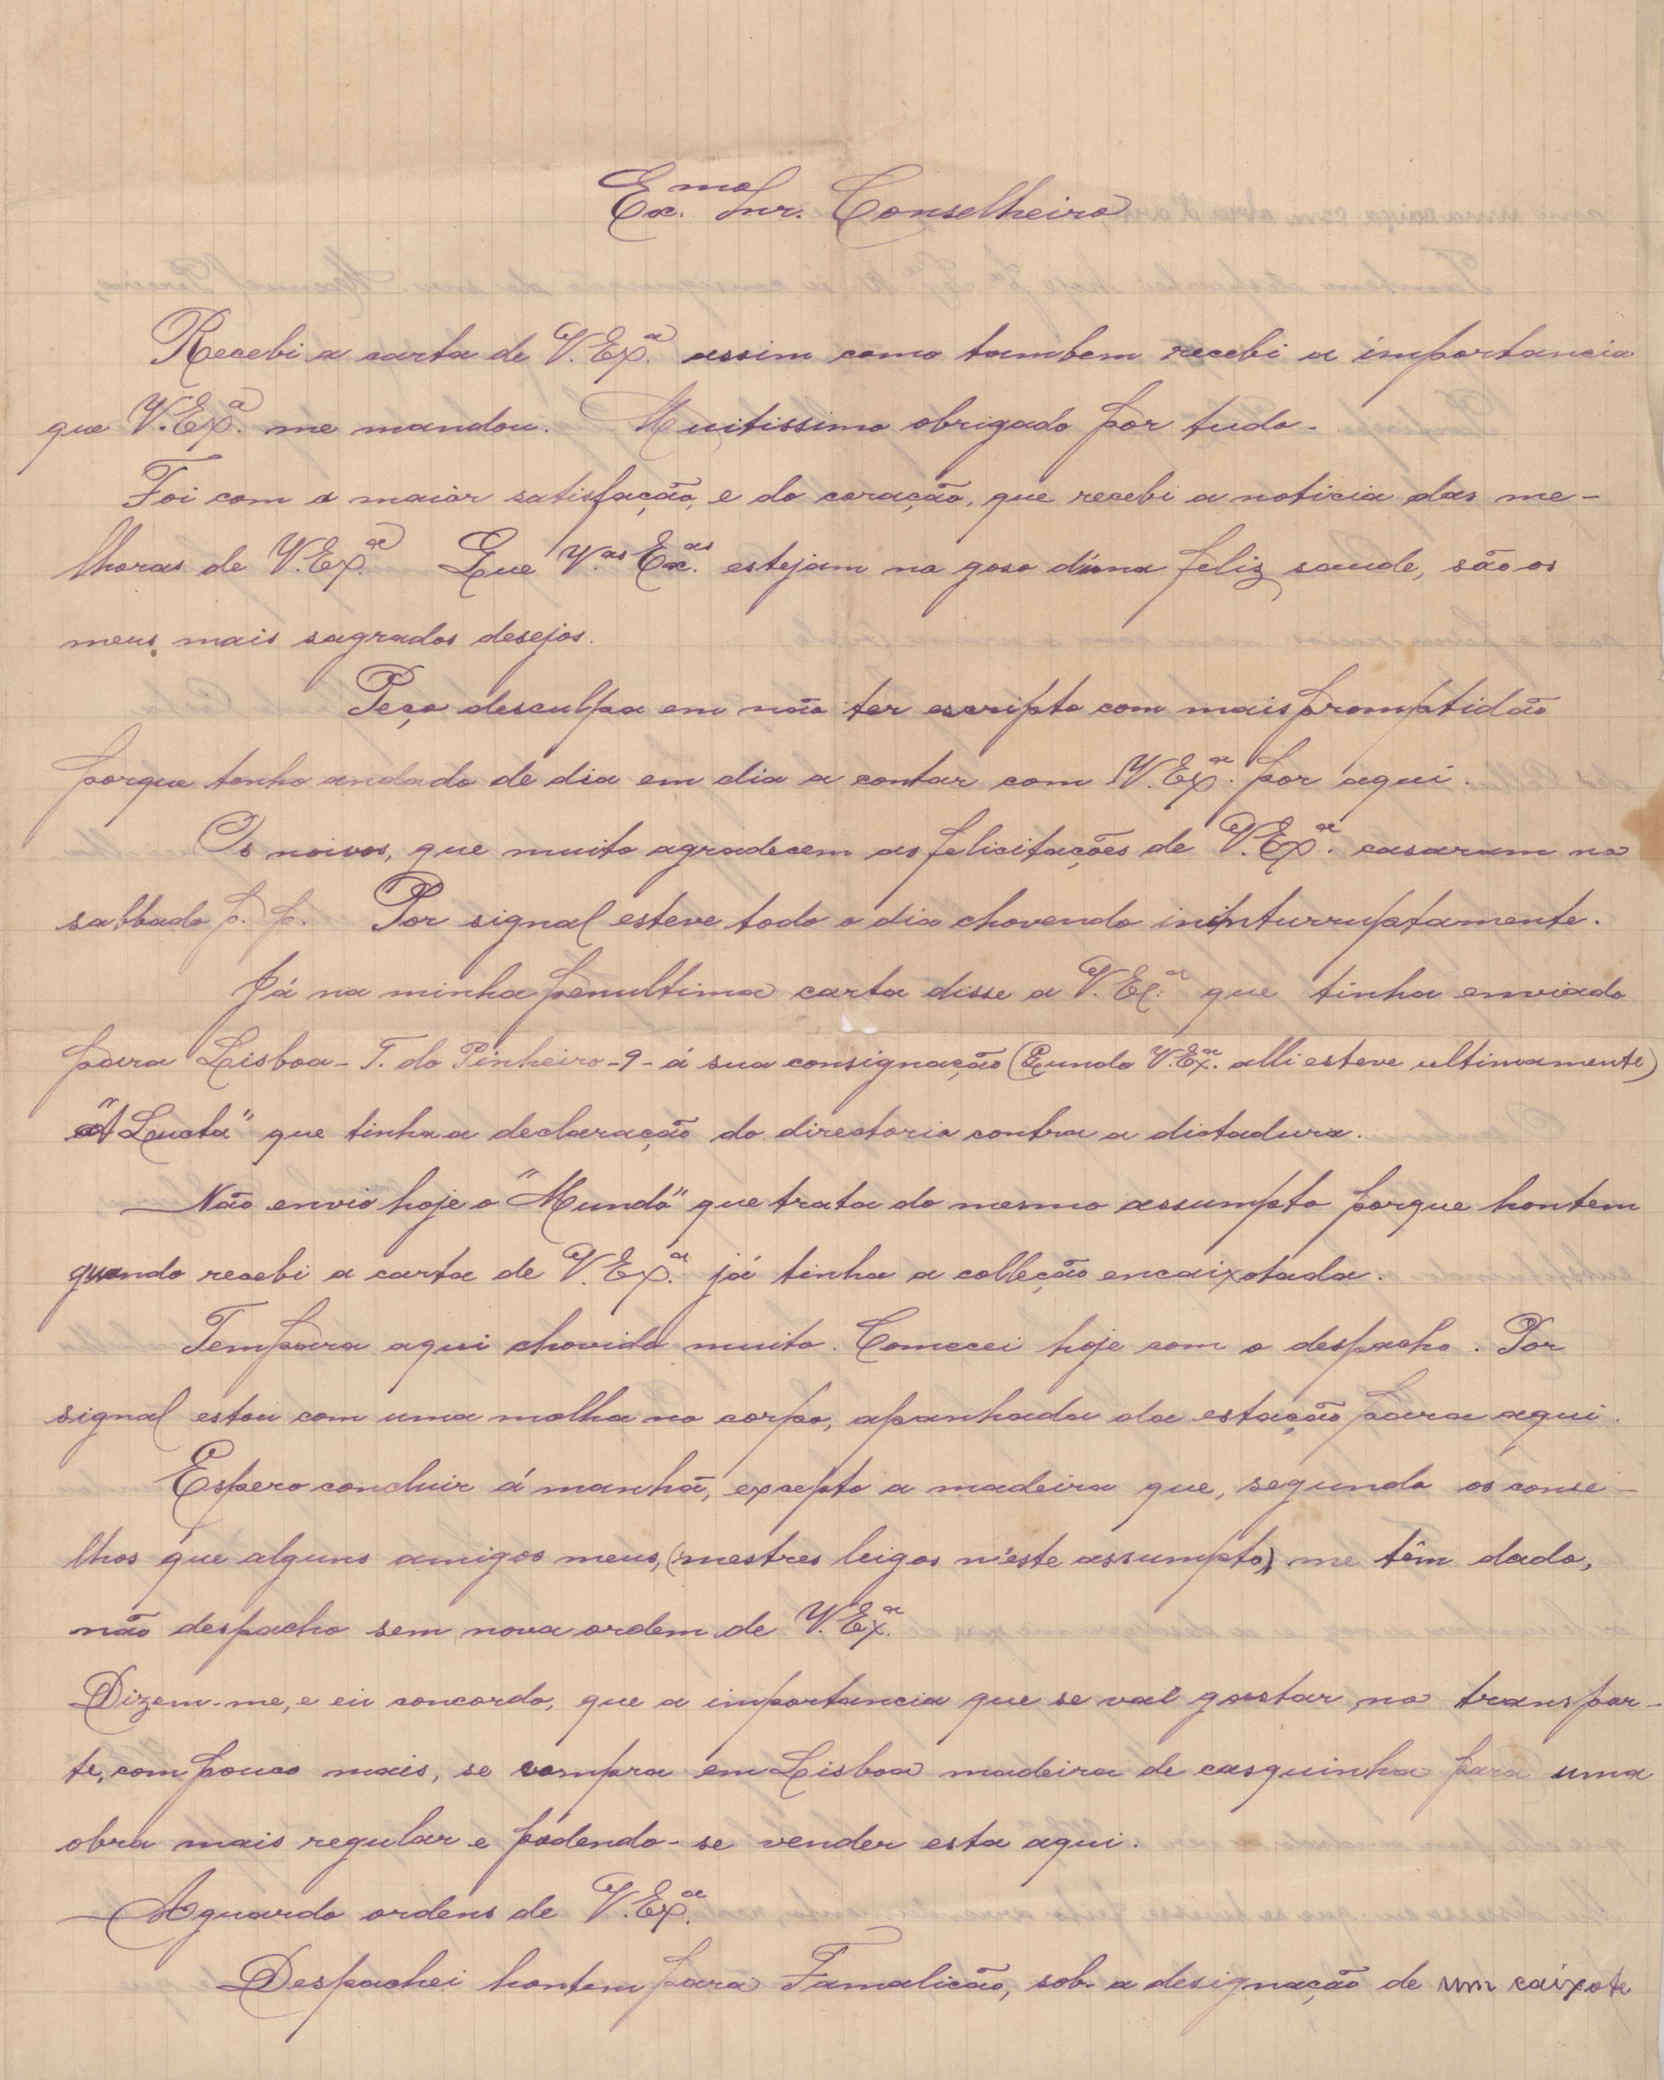 Ex.mo Snr. Conselheiro
Recebi a carta de V. Ex.a assim como tambem recebi a importancia
que V. Ex.a me mandou. Muitissimo obrigado por tudo.
Foi com a maior satisfação, e do coração, que recebi a noticia das me-
lhoras de V. Ex.a Que V.as Ex.as estejam no goso d'uma feliz saude, são os
meus mais sagrados desejos.
Peço desculpa em não ter escripto com mais promptidão
porque tenho andado de dia em dia a contar com V. Ex.a por aqui.
Os noivos, que muito agradecem as felicitações de V. Ex.a casaram no
sabbado p. p. Por signal esteve todo o dia chovendo
Já na minha penultima carta disse a V. Ex.a que tinha enviado
para Lisboa - T. do Pinheiro - 9 - á sua consignação (Quando V. Ex.a alli esteve ultimamente)
"A Lucta" que tinha a declaração do directorio contra a dictadura.
Não envio hoje o "Mundo" que trata do mesmo assumpto porque hontem
quando recebi a carta de V. Ex.a já tinha a colleção encaixotada.
Tem para aqui chovido muito. Comecei hoje com o despacho. Por
signal estou com uma molha no corpo, apanhada da estação para aqui.
Espero concluir á manhã, excepto a madeira que, segundo os conse-
lhos que alguns amigos meus, (mestres leigos n'este assumpto) me têm dado,
não despacho sem nova ordem de V. Ex.a
Dizem-me, e eu concordo, que a importancia que se vai gastar no transpor-
te, com pouco mais, se compra em Lisboa madeira de casquinha para uma
obra mais regular e podendo-se vender esta aqui.
Aguardo ordens de V. Ex.a
Despachei hontem para Famalicão, sob a designação de um caixote